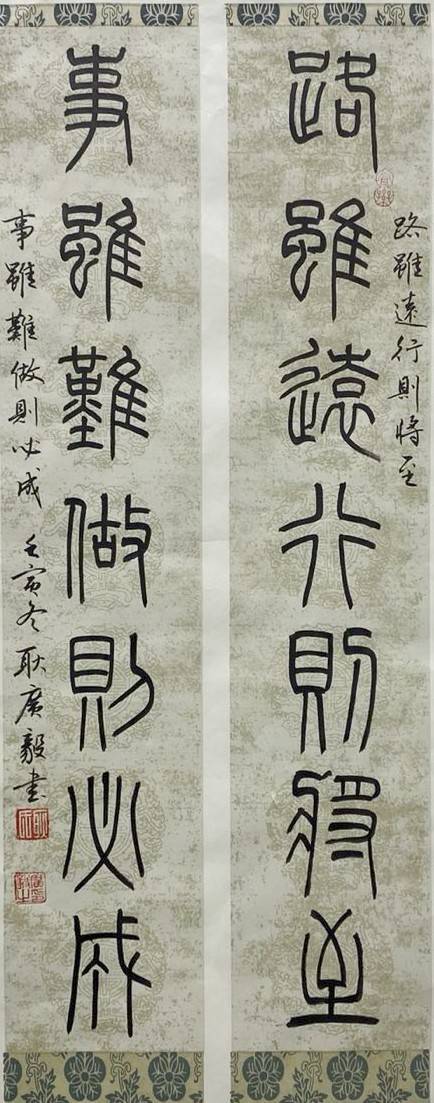 路雖遠行則將至
路雖遠行則將至
事雖難做則必成
事雖難做則必成 壬寅冬耿廣毅書